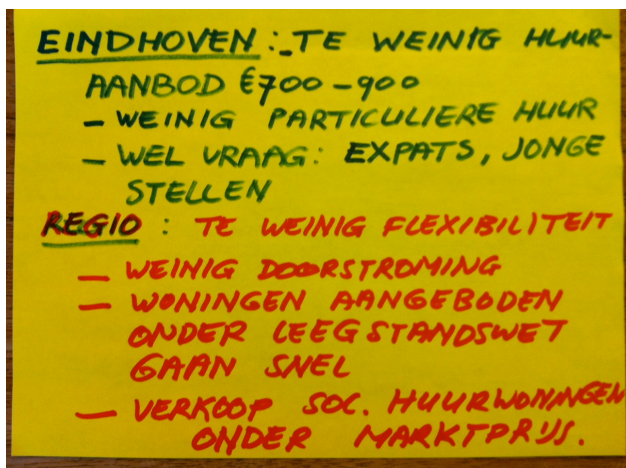 EINDHOVEN: TE WEINIG HUUR-
AANBOD €700-900
- WEINIG PARTICULIERE HUUR
- WEL VRAAG: EXPATS, JONGE
STELLEN
REGIO: TE WEINIG FLEXIBILITEIT
- WEINIG DOORSTROMING
- WONINGEN AANGEBODEN
ONDER LEEGSTANDSWET
GAAN SNEL
- VERKOOP SOC. HUURWONINGEN
ONDER MARKTPRIJS.